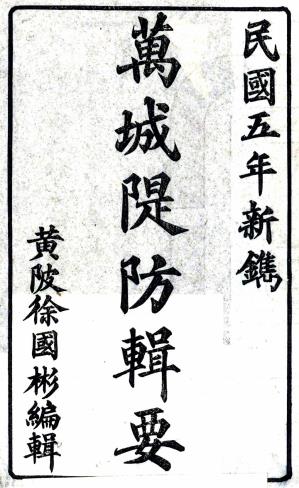 民國五年新鐫
萬城隄防輯要
黃陂徐國彬編輯